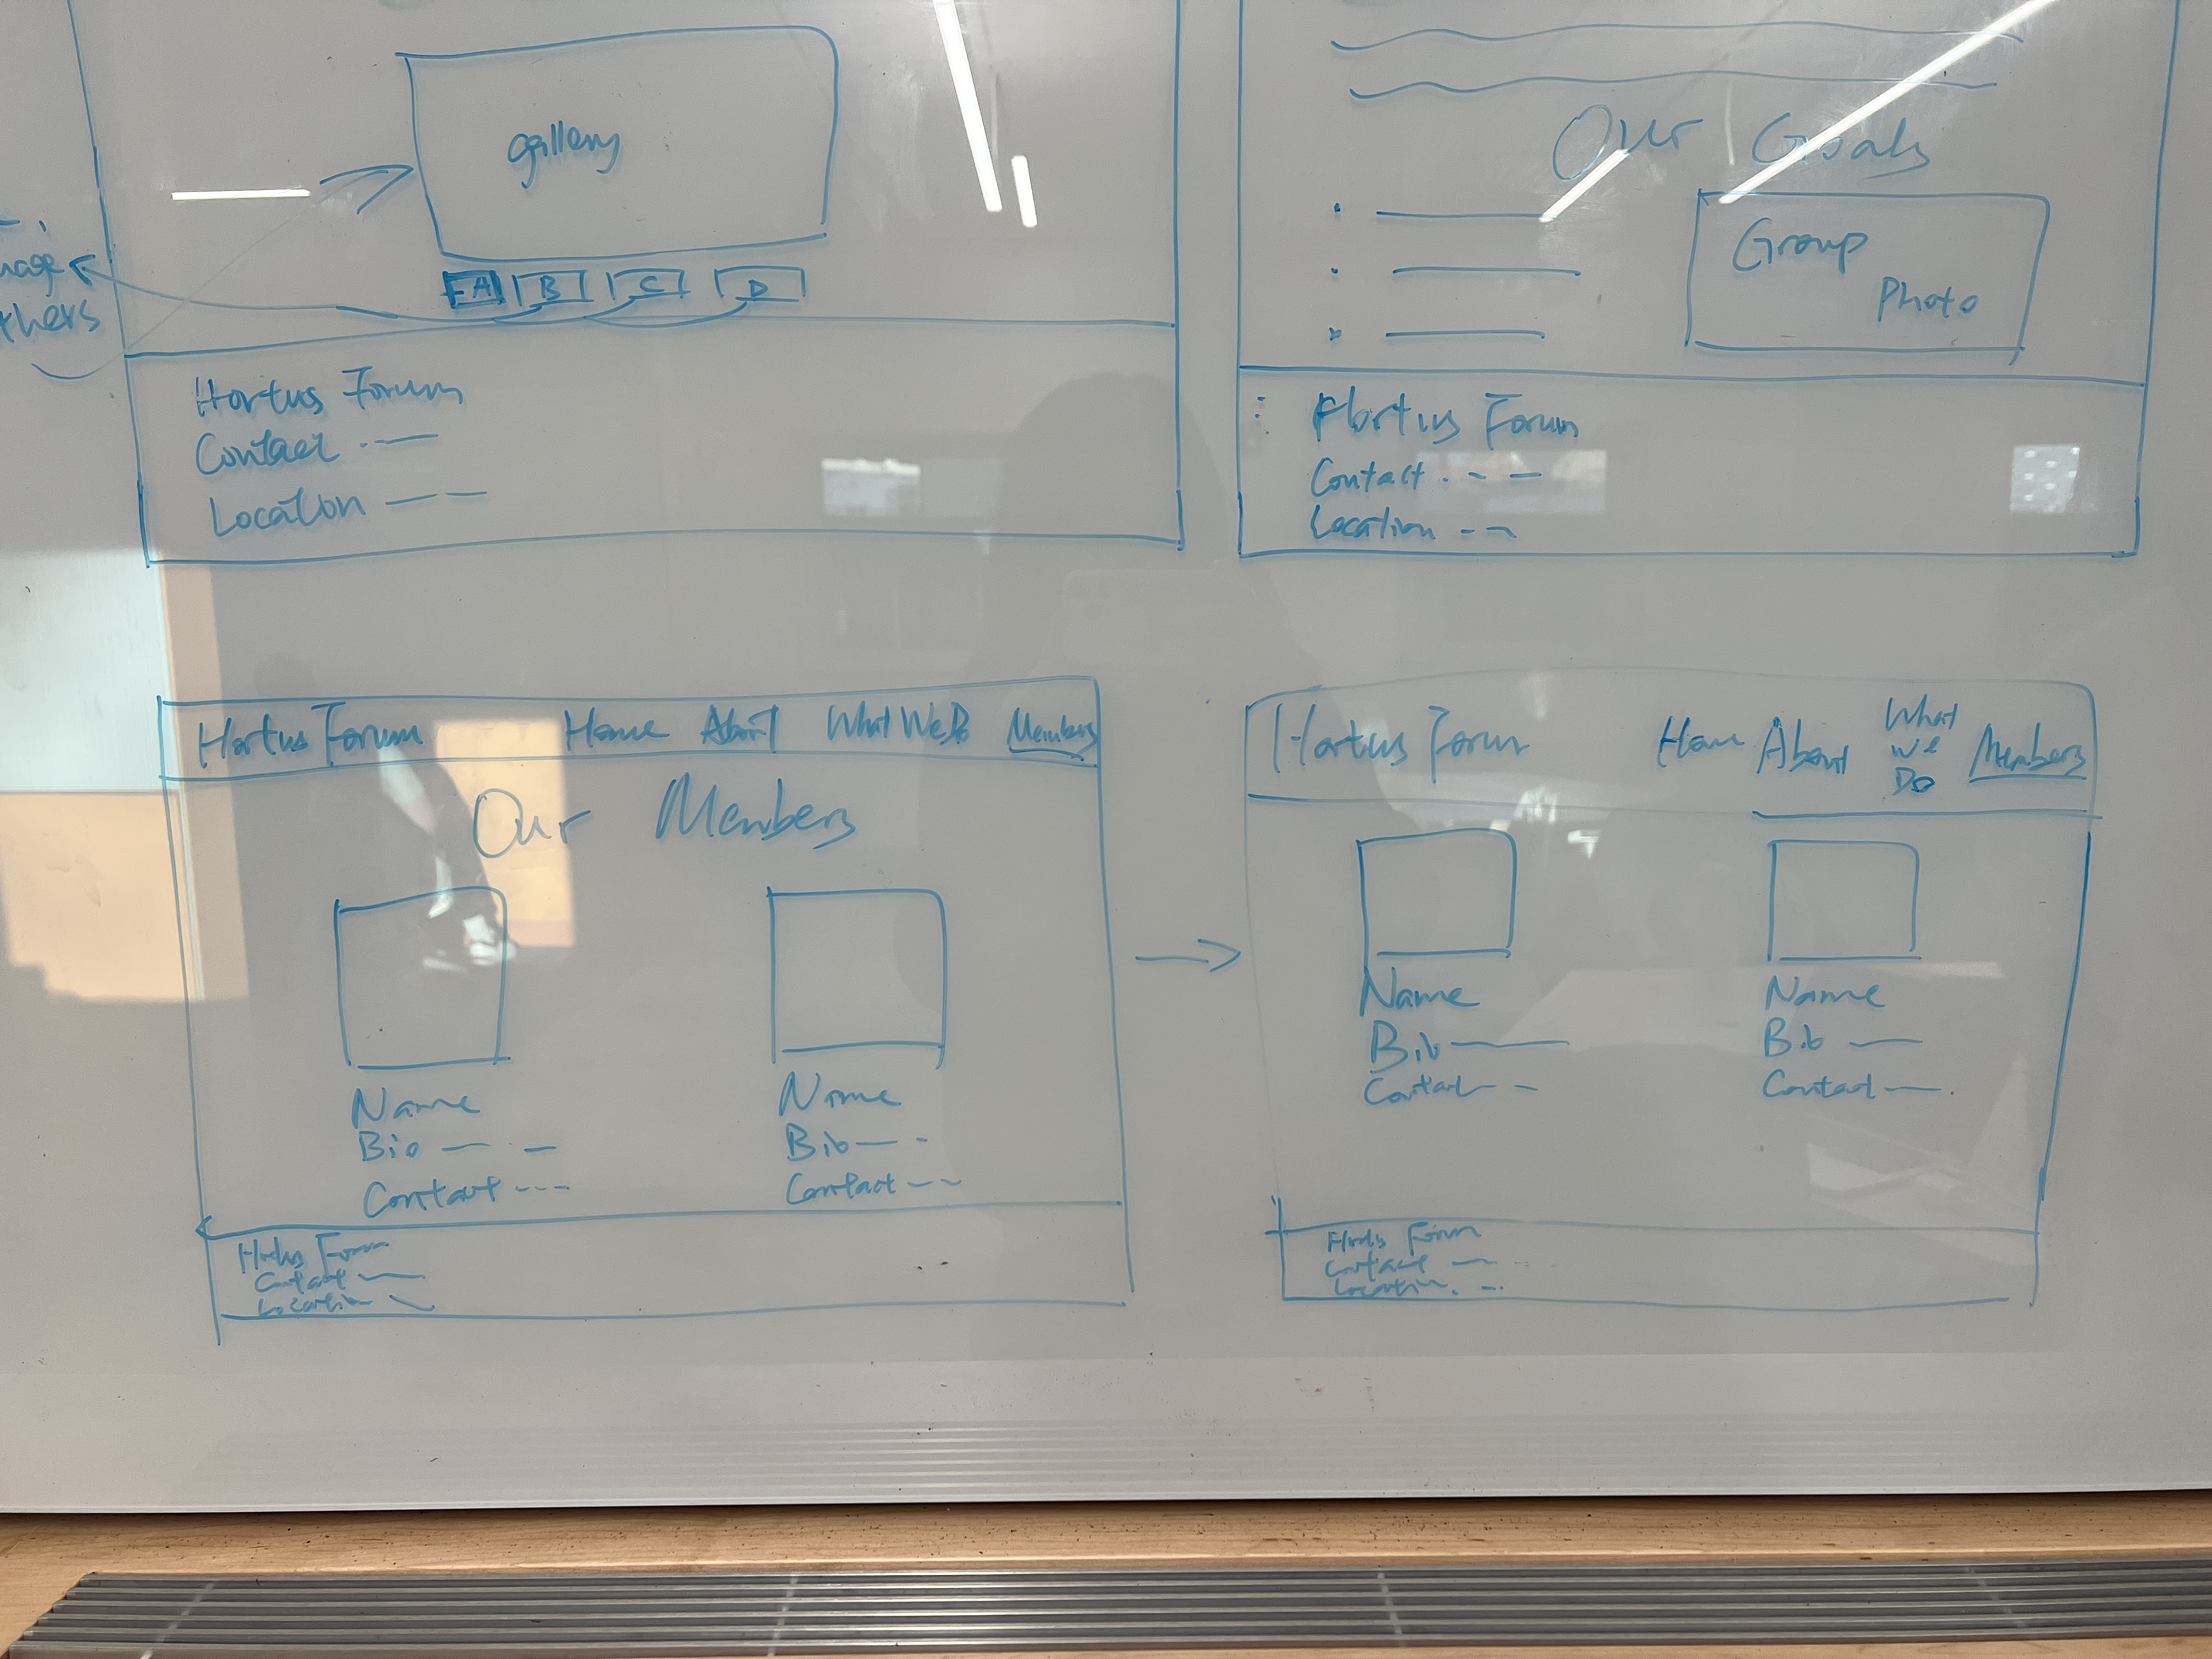 gallery
A B C D
thers
Hortus Forum
Contact
Location
Our Goals
Group
Photo
Hortus Forum
Contact
Location
Hortus Forum Home About What We Do Members
Our Members
Name
Bio
Contact
Name
Bio
Contact
Hortus Forum
Contact
Location
Hortus Forum Home About What
We
Do
Members
Name
Bio
Contact
Name
Bio
Contact
Hortus Forum
Contact
Location